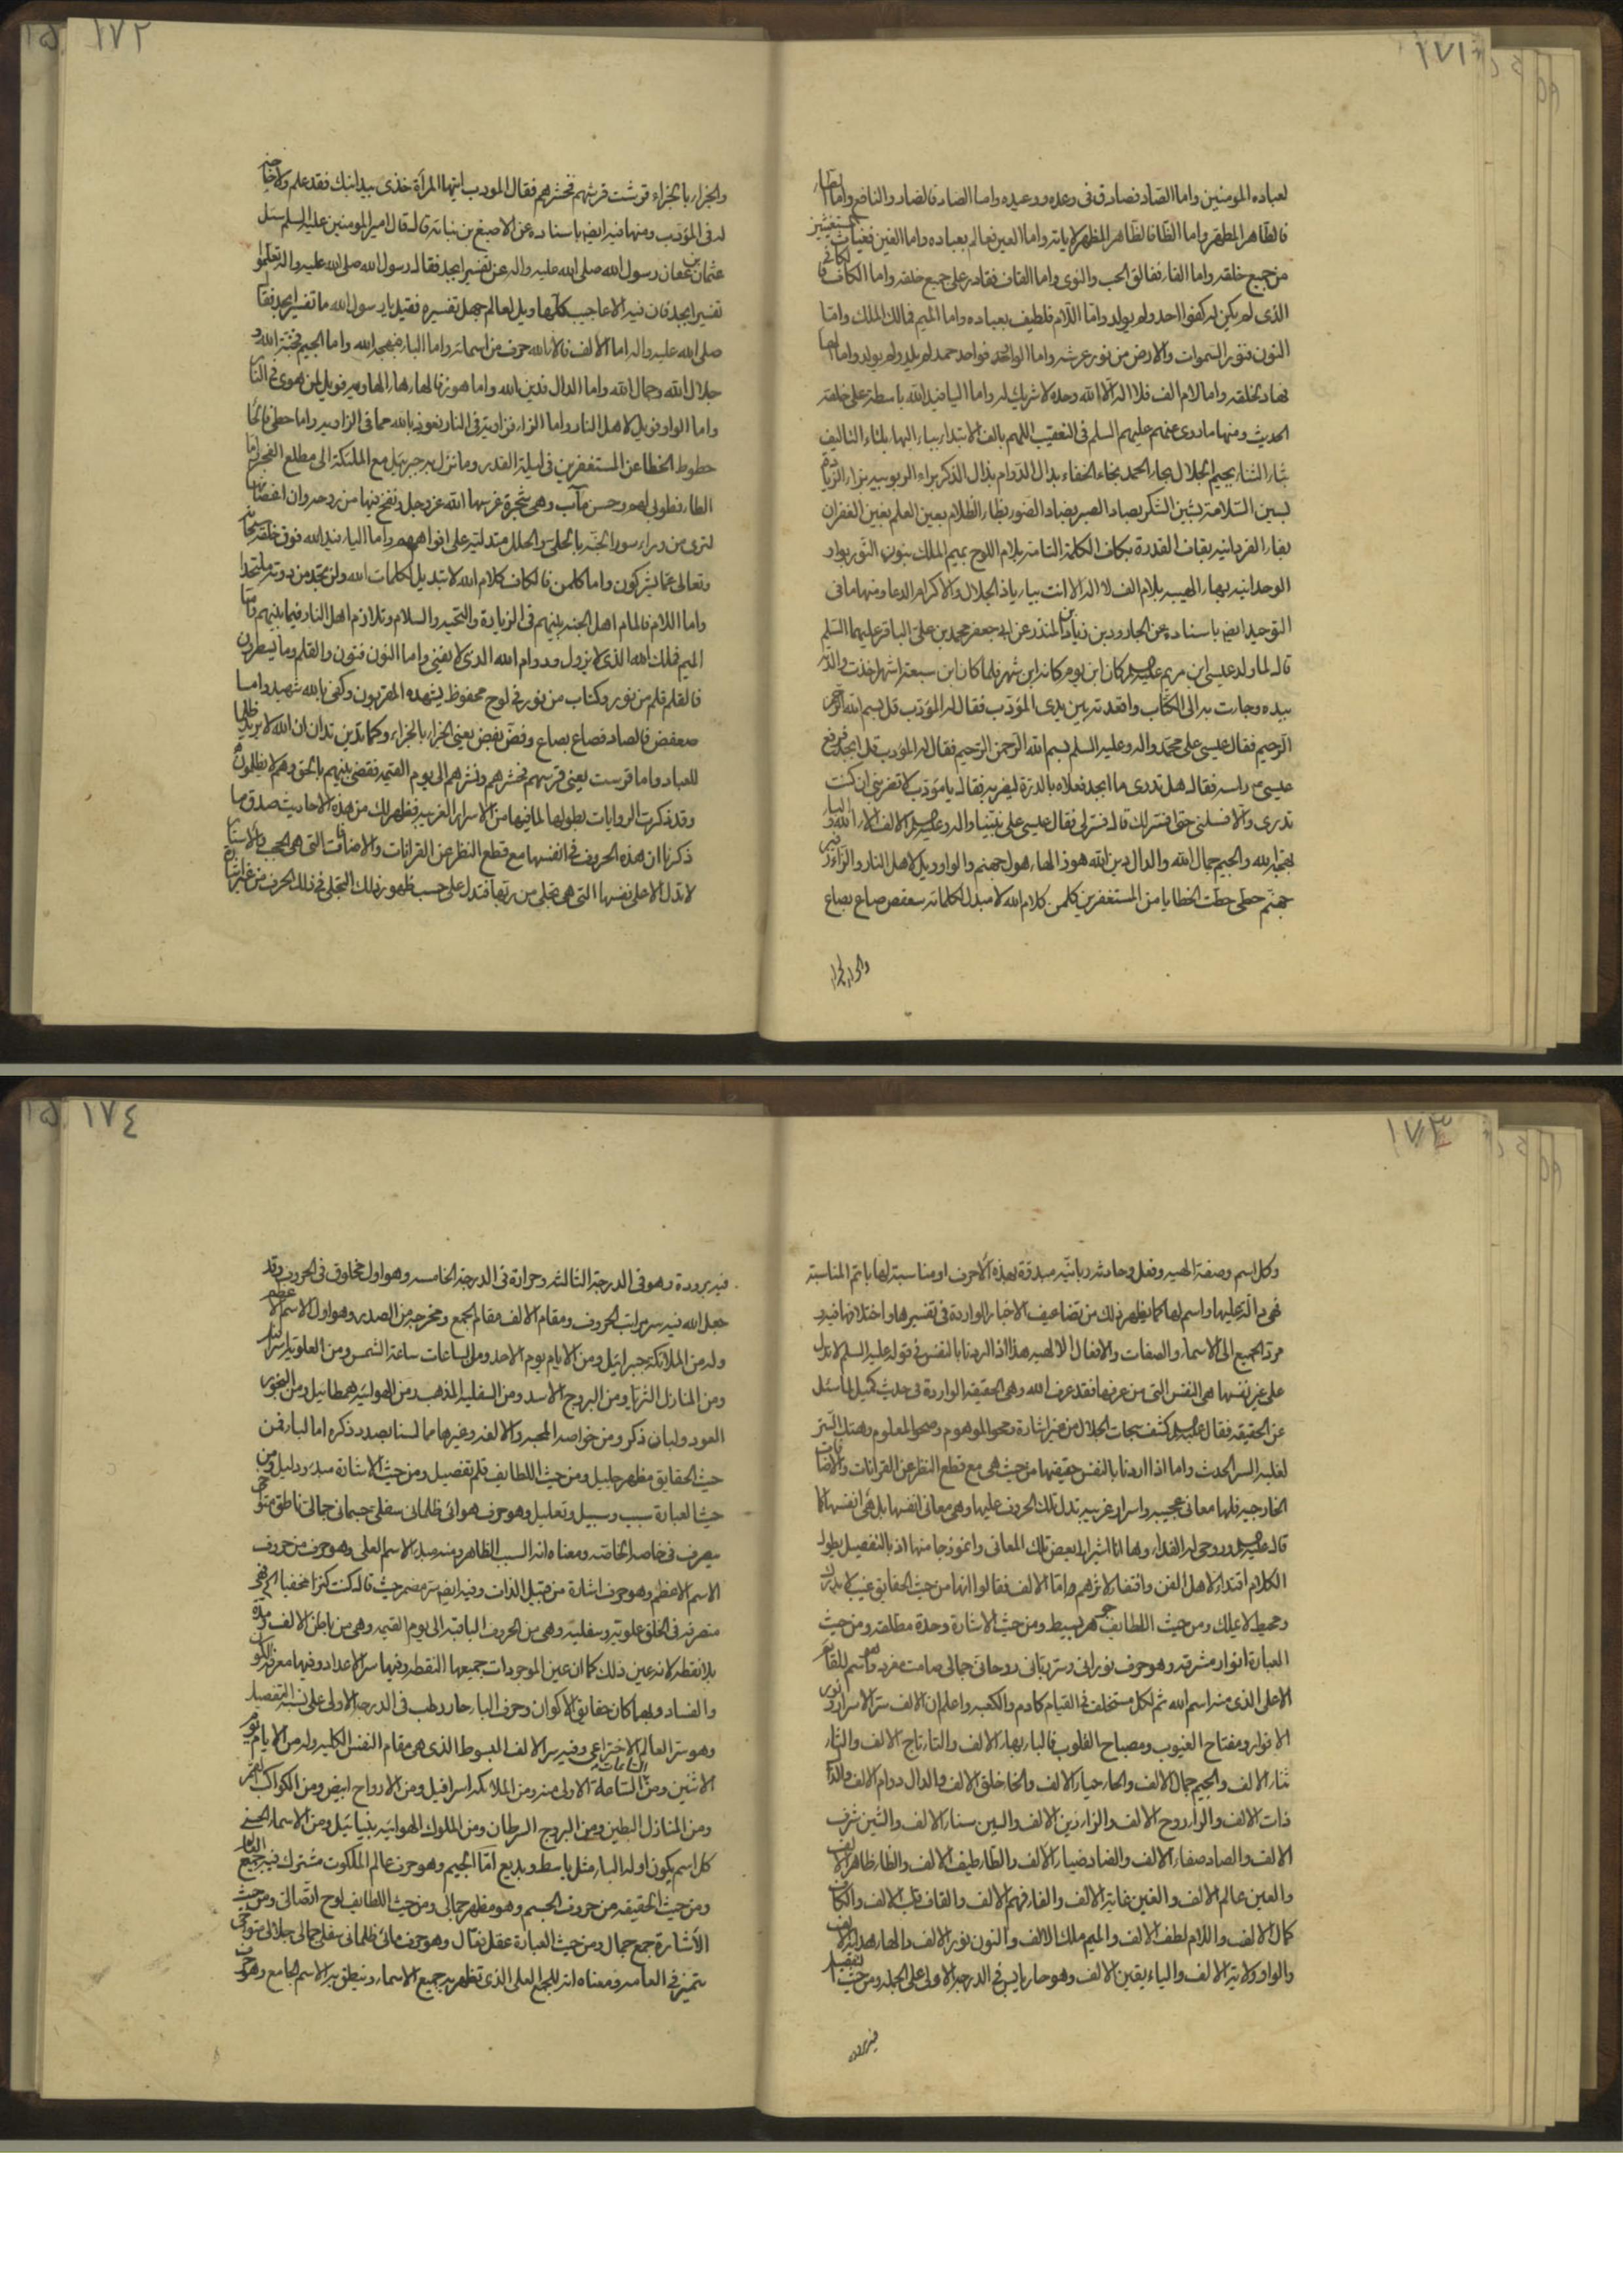 ١٧١
لعباده المومنين واما الصاد فصادق فى وعده ووعيده واما الضاد فالضار والنافع واما الطاء
فالطاهر المطهر واما الظا فالظاهر المظهر لاياته واما العين فعالم بعباده واما الغين فغياث المستغيثين
من جميع خلقه واما الفاء ففالق الحب والنوى واما القاف فقادر على جميع خلقه واما الكاف فا لكافى
الذى لم يكن له كفوا احد ولم يولد واما اللام فلطيف بعباده واما الميم فمالك الملك واما
النون فنور السموات والارض من نور عرشه واما الواو فواحد صمد لم يلد ولم يولد واما الها
فهاد لخلقه واما لام الف فلا اله الا الله وحده لا شريك له واما اليا فيد الله باسطة على خلقه
الحديث ومنها ما روى عنهم عليهم السلم فى التعقيب اللهم بالف الابتداء بباء البهاء بتاء التاليف
بثاء الثناء بجيم الجلال بحاء الحمد بخاء الخفاء بدال الدوام بذال الذكر براء الربوبيه بزاء الزيادة
بسين السلامة بشين الشكر بصاد الصبر بضاد الضوء بظاء الظلام بعين العلم بغين الغفران
بفاء الفردانيه بقاف القدرة بكاف الكلمة التامة بلام اللوح بميم الملك بنون النور بواو
الوحدانيه بهاء الهيبه بلام الف لا اله الا انت بياء ياذ الجلال والاكرام الدعا ومنها ما فى
التوحيد ايضا باسناده عن الجارود بن زياد بن المنذر عن ابى جعفر محمد بن على الباقر عليهما السلم
قال لما ولد عيسى ابن مريم عليه السلم كان ابن يوم كانه ابن شهر فلما كان ابن سبعة اشهر اخذت والدته
بيده وجاءت به الى الكتاب واقعدته بين يدى المؤدب فقال له المؤدب قل بسم الله الرحمن
الرحيم فقال عيسى على محمد واله وعليه السلم بسم الله الرحمن الرحيم فقال له المؤدب قل ابجد فرفع
عيسى ع راسه فقال هل تدرى ما ابجد فعلاه بالدرة ليضربه فقال يا مؤدب لا تضربنى ان كنت
تدرى والا فسلنى حتى افسر لك قال فسر لى فقال عيسى على نبينا واله وعليه السلم الالف الاء الله والباء
بهجة الله والجيم جمال الله والدال دين الله هوز الهاء هول جهنم والواو ويل لاهل النار والزاء زفير
جهنم حطى حطت الخطايا من المستغفرين كلمن كلام الله لا مبدل لكلماته سعفص صاع بصاع
١٧٢
والجزاء بالجزاء قرشت قرشهم فحشرهم فقال المودب ايتها المراة خذى بيد ابنك فقد علم ولا حاجة
له فى المؤدب ومنها فيه ايضا باسناده عن الاصبغ بن نباته قال قال امير المومنين عليه السلم سئل
عثمان بن عفان رسول الله صلى الله عليه واله عن تفسير ابجد فقال رسول الله صلى الله عليه واله تعلموا
تفسير ابجد فان فيه الاعاجيب كلها ويل لعالم جهل تفسيره فقيل يا رسول الله ما تفسير ابجد فقال
صلى الله عليه واله اما الالف فالاء الله حرف من اسمائه واما الباء فبهجة الله واما الجيم فجنة الله و
جلال الله وجمال الله واما الدال فدين الله واما هوز فالهاء هاء الهاويه فويل لمن هوى فى النار
واما الواو فويل لاهل النار واما الزاء فزاوية فى النار نعوذ بالله مما فى الزاويه واما حطى فالحاء
حطوط الخطايا عن المستغفرين فى ليلة القدر وما نزل به جبرئيل مع الملئكة الى مطلع الفجر واما
الطاء فطوبى لهم وحسن مآب وهى شجرة غرسها الله عز وجل ونفخ فيها من روحه وان اغصانها
لترى من وراء سور الجنة بالحلى والحلل متدلية على افواههم واما الياء فيد الله فوق خلقه سبحانه
وتعالى عما يشركون واما كلمن فالكاف كلام الله لا تبديل لكلمات الله ولن تجد من دونه ملتحدا
واما اللام فالمام اهل الجنه بينهم فى الزيارة والتحيه والسلام وتلاوم اهل النار فيما بينهم واما
الميم فملك الله الذى لا يزول ودوام الله الذى لا يفنى واما النون فنون والقلم وما يسطرون
فالقلم قلم من نور وكتاب من نور فى لوح محفوظ يشهده المقربون وكفى بالله شهيدا واما
سعفص فالصاد فصاع بصاع وفص بفص يعنى الجزاء بالجزاء وكما تدين تدان ان الله لا يريد ظلما
للعباد واما قرشت يعنى قرشهم فحشرهم ونشرهم الى يوم القيمه فقضى بينهم بالحق وهم لا يظلمون
وقد ذكرت الروايات بطولها لما فيها من الاسرار الغريبه فظهر لك من هذه الاحاديث صدق ما
ذكرنا ان هذه الحروف فى انفسها مع قطع النظر عن القرانات والاضافات التى هى الحجب والاستار
لا تدل الا على نفسها التى هى تجلى من ربها فتدل على حسب ظهور ذلك التجلى فى ذلك الحرف من غير اشارة
١٧٣
وكل اسم وصفة الهيه وفعل وحادثه ربانيه مبدوة بهذه الاحرف او مناسبة لها باتم المناسبة
فهى دالة عليها واسم لها كما يظهر ذلك من تضاعيف الاخبار الواردة فى تفسيرها واختلافها فيه و
مرد الجميع الى الاسماء والصفات والافعال الالهيه هذا اذا اردنا بالنفس فى قوله عليه السلم لا تدل
على غير نفسها هى النفس التى من عرفها فقد عرف الله وهى الحقيقه الواردة فى حديث كميل لما سئل
عن الحقيقه فقال عليه السلم كشف سبحات الجلال من غير اشارة ومحو الموهوم وصحو المعلوم وهتك الستر
لغلبة السر الحديث واما اذا اردنا بالنفس حقيقتها من حيث هى مع قطع النظر عن القرانات والاضافات
الخارجيه فلها معانى عجيبه واسرار غريبه تدل تلك الحروف عليها وهى معانى انفسها بل هى انفسها كما
قال عليه السلم وروحى له الفداء وها انا اشير الى بعض تلك المعانى وانموذجا منها اذ بالتفصيل يطول
الكلام اقتداء لاهل الفن واقتفاء لاثرهم واما الالف فقالوا انها من حيث الحقايق غيب لا يدرك
ومحيط لا يملك ومن حيث اللطايف جوهر بسيط ومن حيث الاشارة وحدة مطلقه ومن حيث
العبارة انوار مشرقه وهو حرف نورانى وسر ربانى روحانى جمالى صامت مفرد وهو اسم للقائم
الاعلى الذى منه اسم الله ثم لكل مستخلف فى القيام كادم والكعبه واعلم ان الالف سر الاسرار ونور
الانوار ومفتاح الغيوب ومصباح القلوب فالباء بهاء الالف والتاء تاج الالف والثاء
ثناء الالف والجيم جمال الالف والحاء حياء الالف والخا خلق الالف والدال دوام الالف والذال
ذات الالف والراء روح الالف والزاء زين الالف والسين سناء الالف والشين شرف
الالف والصاد صفاء الالف والضاد ضياء الالف والطاء طيف الالف والظاء ظاهر الالف
والعين عالم الالف والغين غاية الالف والفاء فهم الالف والقاف قاب الالف والكاف
كمال الالف واللام لطف الالف والميم ملك الالف والنون نور الالف والهاء هداية الالف
والواو ولاية الالف والياء يقين الالف وهو حار يابس فى الدرجه الاولى على الجمله ومن حيث التفصيل
١٧٤
فيه برودة وهو فى الدرجة الثالثه وحرارة فى الدرجة الخامسه وهو اول مخلوق فى الحروف وقد
جعل الله فيه سر مراتب الحروف ومقام الالف مقام الجمع ومخرجه من الصدر وهو اول الاسم الاعظم
وله من الملائكة جبرائيل ومن الايام يوم الاحد ومن الساعات ساعة الشمس ومن العلويه
ومن المنازل الثريا ومن البروج الاسد ومن السفليه المذهب ومن الهوائيه همطائيل ومن البخور
العود ولبان ذكر ومن خواصه المحبه والالفه وغيرها مما لسنا بصدد ذكره اما الباء فمن
حيث الحقايق مظهر جليل ومن حيث اللطايف قلم تفصيل ومن حيث الاشارة مبدء ودليل ومن
حيث العبارة سبب وسبيل وتعليل وهو حرف هوائى ظلمانى سفلى جسمانى جمالى ناطق متوخى
يصرف فى خاصه الخاصه ومعناه انه السبب الظاهر ومنه مبدء الاسم العلى وهو حرف من حروف
الاسم الاعظم وهو حرف اشارة من قبيل الذات وفيه ايضا سر مضمر حيث قال كنت كنزا مخفيا
متصرفه فى الخلق علويه وسفليه وهى من الحروف الباقية الى يوم القيمه وهى من باطن الالف
بلا نقطه لانه عين ذلك كما ان عين الموجودات جميعها النقطه وفيها سر الاعداد وفيها معرفة الكون
والفساد وبها كان حقايق الاكوان وحرف الباء حار رطب فى الدرجه الاولى على نسبة التفصيل
وهو سر العالم الاختراعى وفيه سر الالف المبسوط الذى هى مقام النفس الكليه وله من الايام يوم
الاثنين ومن الساعات الساعة الاولى منه ومن الملائكه اسرافيل ومن الارواح ابيض ومن الكواكب القمر
ومن المنازل البطين ومن البروج السرطان ومن الملوك الهوائيه ومن الاسماء الحسنى
كل اسم يكون اوله الباء مثل باسط وبديع اما الجيم وهو حرف عالم الملكوت مشترك فيه جميع العوالم
ومن حيث الحقيقه من حروف الجسم وهو مظهر جمالى ومن حيث اللطايف لوح اتصالى ومن حيث
الاشارة جمع جمال ومن حيث العبارة عقل فعال وهو حرف مائى ظلمانى سفلى جمالى جلالى متوخى
يتميز فى العامه ومعناه انه للجمع العلى الذى تظهر به جميع الاسماء وينطق به الاسم الجامع وهو حرف